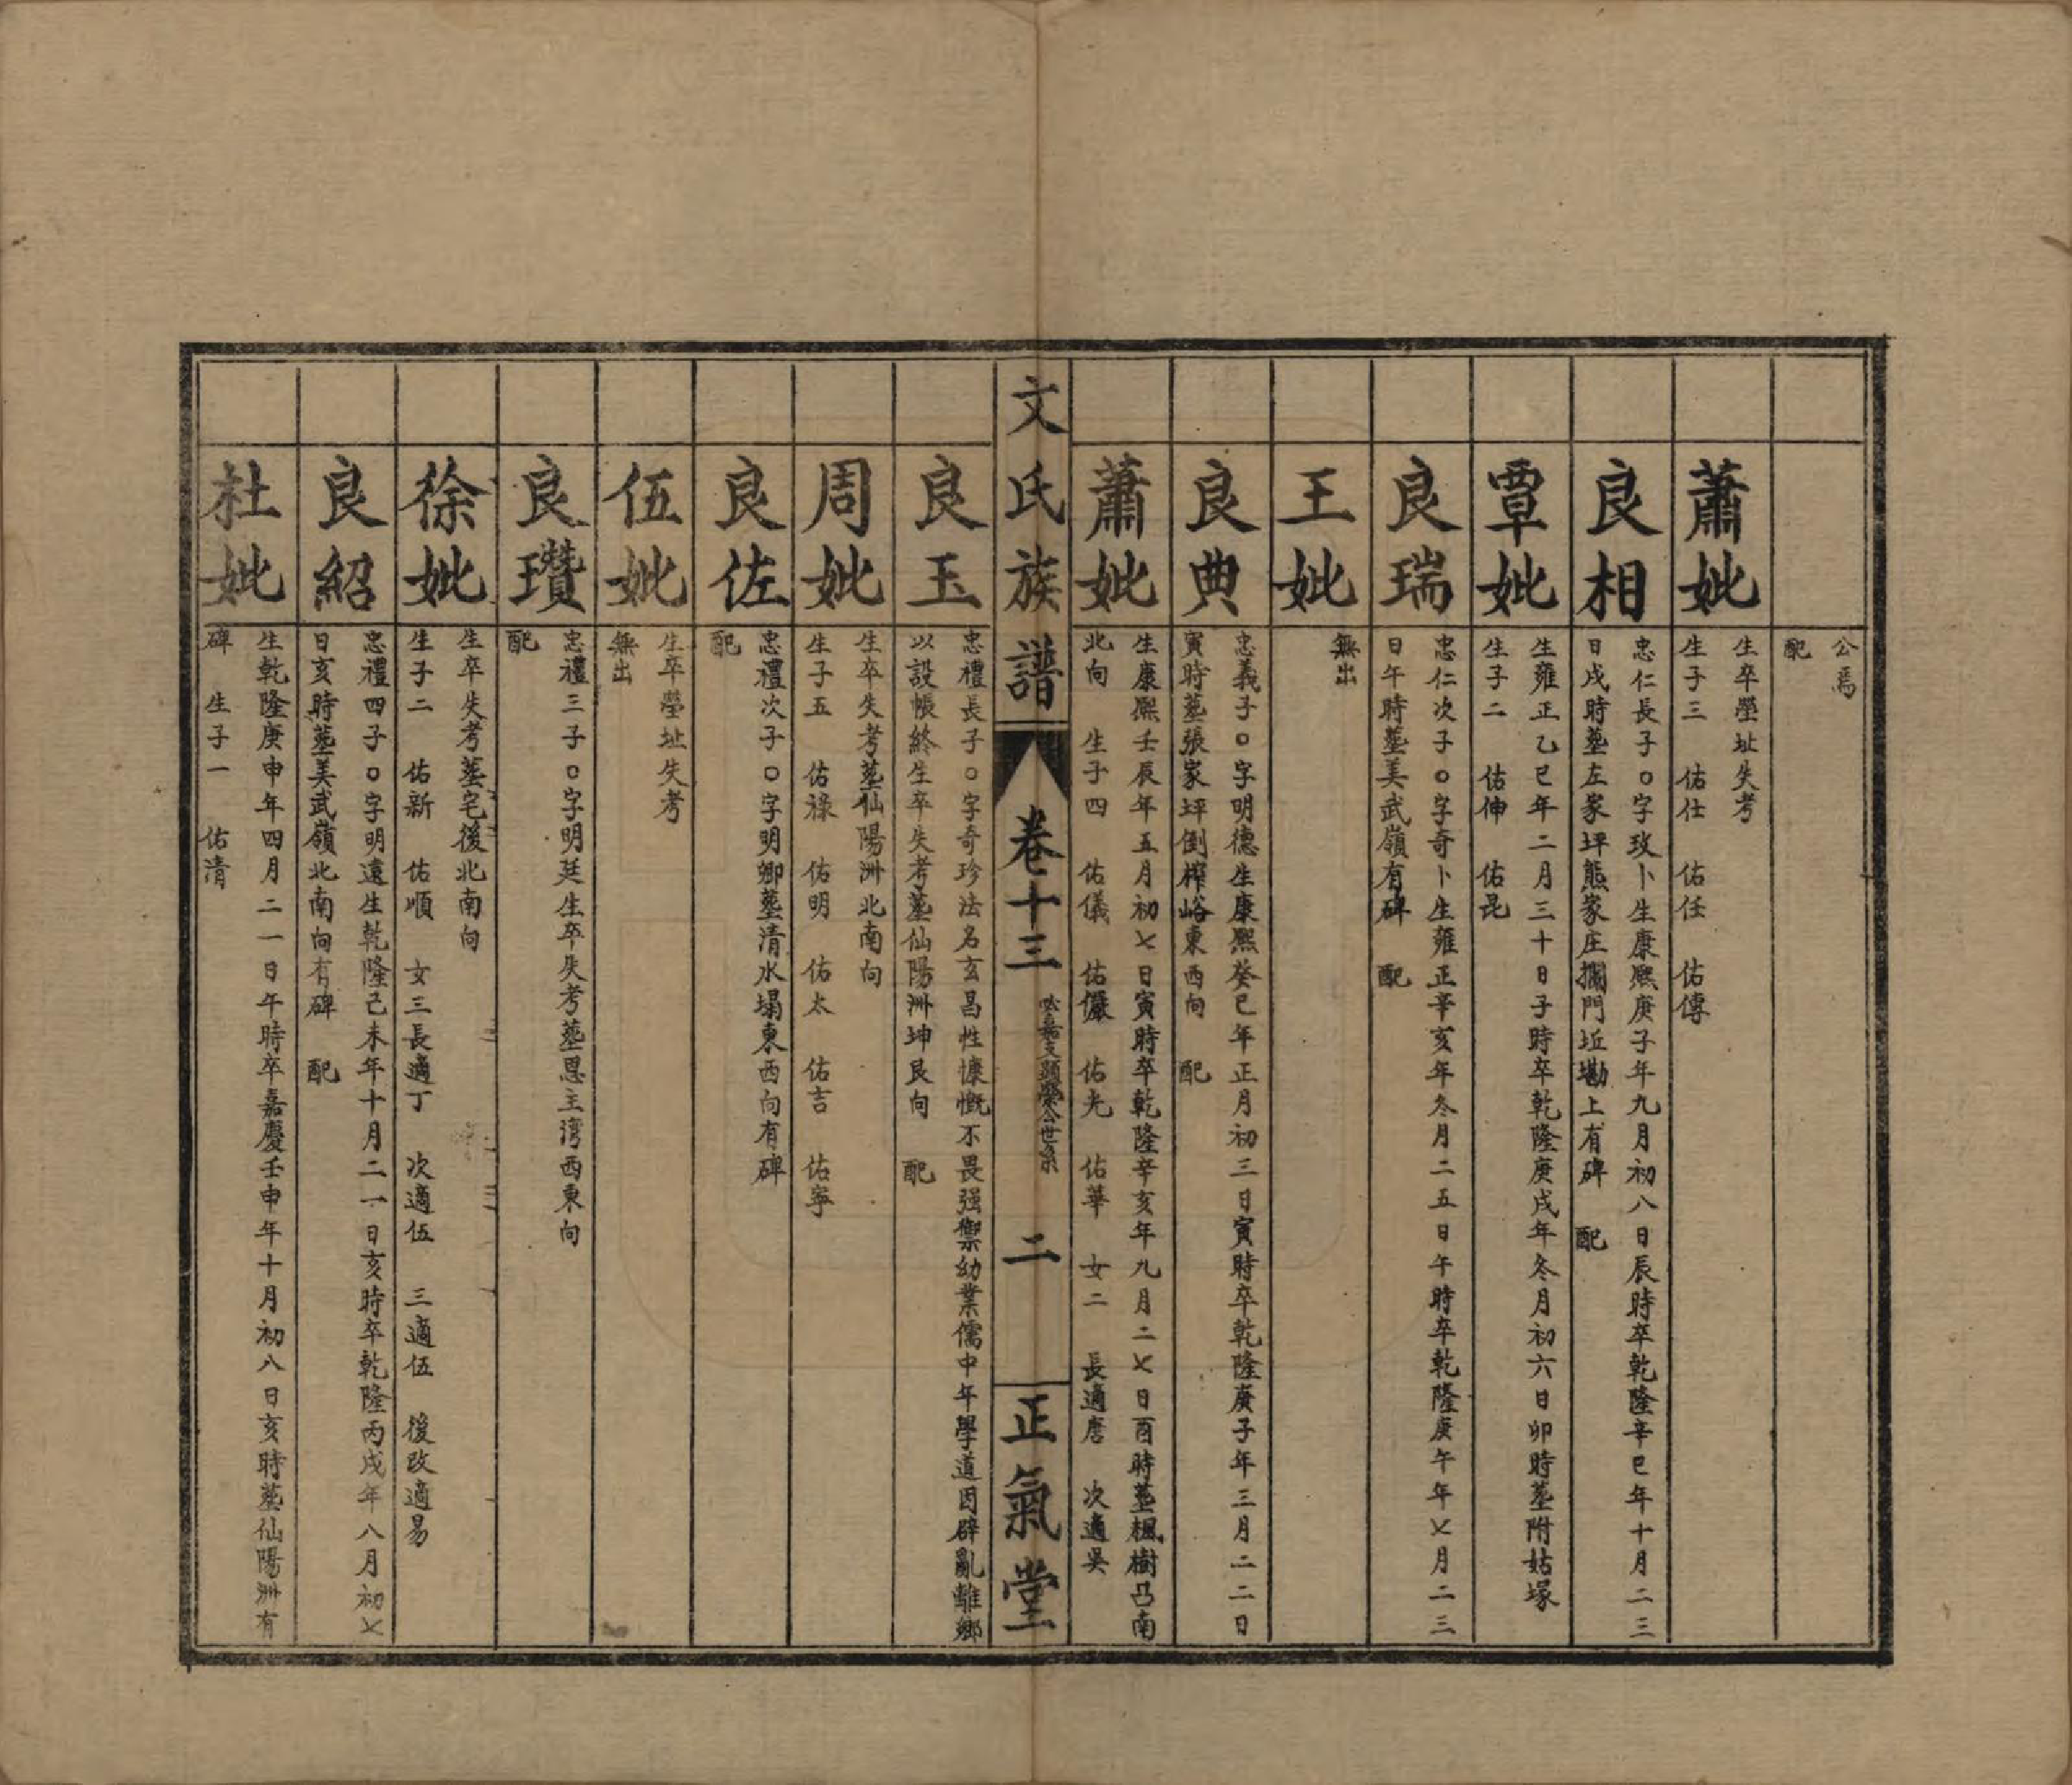 公焉
配
蕭妣
生卒塋址失考
生子三　佑仕　佑任　佑傳
良相
忠仁長子○字玫卜生康熙庚子年九月初八日辰時卒乾隆辛巳年十月二三
日戌時墓左家坪熊家庄攔門坵墈上有碑　配
覃妣
生雍正乙巳年二月三十日子時卒乾隆庚戌年冬月初六日卯時墓附姑塚
生子二　佑伸　佑昆
良瑞
忠仁次子○字奇卜生雍正辛亥年冬月二五日午時卒乾隆庚午年七月二三
日午時墓美武嶺有碑　配
王妣
無出
良典
忠義子○字明德生康熙癸巳年正月初三日寅時卒乾隆庚子年三月二二日
寅時墓張家坪倒榨峪東西向　配
蕭妣
生康熙壬辰年五月初七日寅時卒乾隆辛亥年九月二七日酉時墓楓樹凸南
北向　生子四　佑儀　佑儼　佑光　佑華　女二　長適唐　次適吳
文氏族譜
卷十三
嘉支顯榮公世系
二
正氣堂
良玉
忠禮長子○字奇珍法名玄昌性慷慨不畏强禦幼業儒中年學道因辟亂離鄉
以設帳終生卒失考墓仙陽洲坤艮向　配
周妣
生卒失考墓仙陽洲北南向
生子五　佑祿　佑明　佑太　佑吉　佑寧
良佐
忠禮次子○字明卿墓清水塌東西向有碑
配
伍妣
生卒塋址失考
無出
良瓚
忠禮三子○字明廷生卒失考墓恩主灣西東向
配
徐妣
生卒失考墓宅後北南向
生子二　佑新　佑順　女三長適丁　次適伍　三適伍　後改適易
良紹
忠禮四子○字明遠生乾隆己未年十月二一日亥時卒乾隆丙戌年八月初七
日亥時墓美武嶺北南向有碑　配
杜妣
生乾隆庚申年四月二一日午時卒嘉慶壬申年十月初八日亥時墓仙陽洲有
碑　生子一　佑清